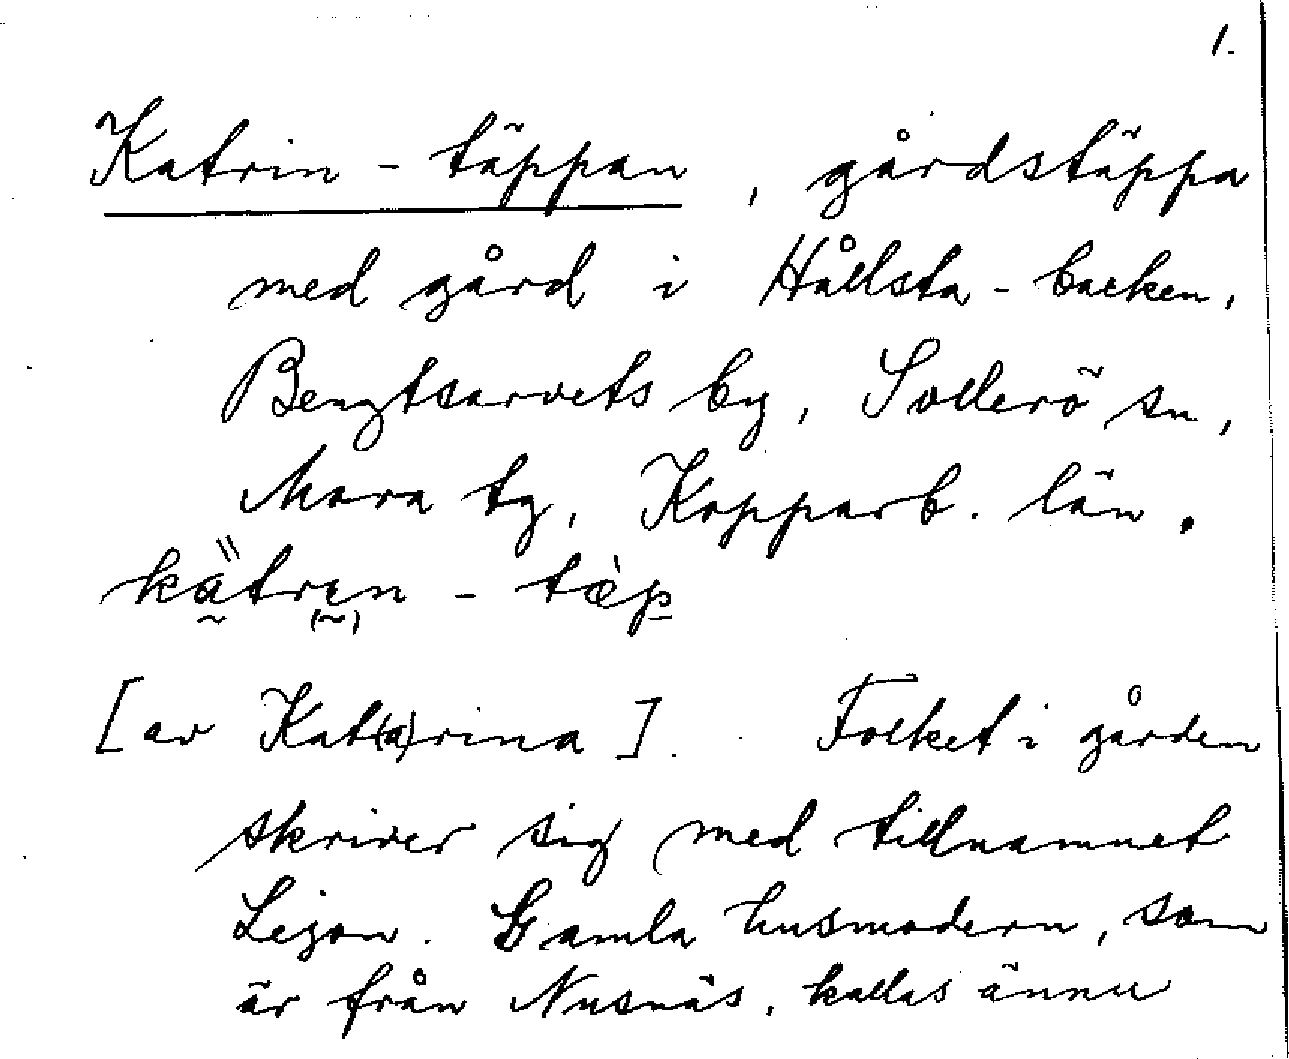 1.
Katrin-täppan, gårdstäppa
med gård i Hållsta-backen,
Bengtsarvets by, Sollerö sn,
Mora tg, Kopparb. län.
kätren - tæp
[av Kat(a)rina]. Folket i gården
skriver sig med tillnamnet
Lejon. Gamla husmodern, som
är från Nusnäs, kallas ännu